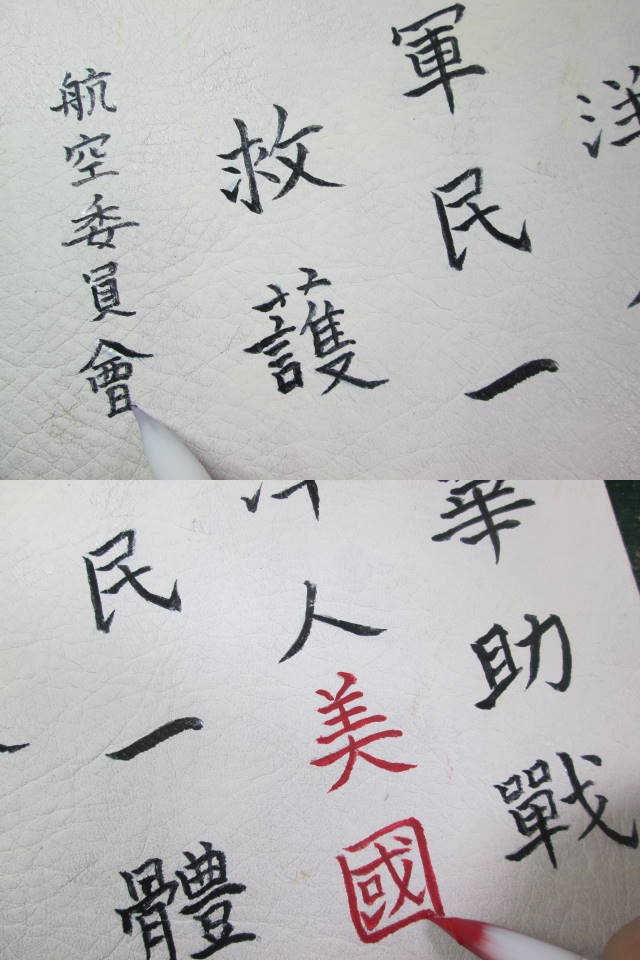 洋
軍民一
救護
航空委員會
華助戰
人美國
民一體